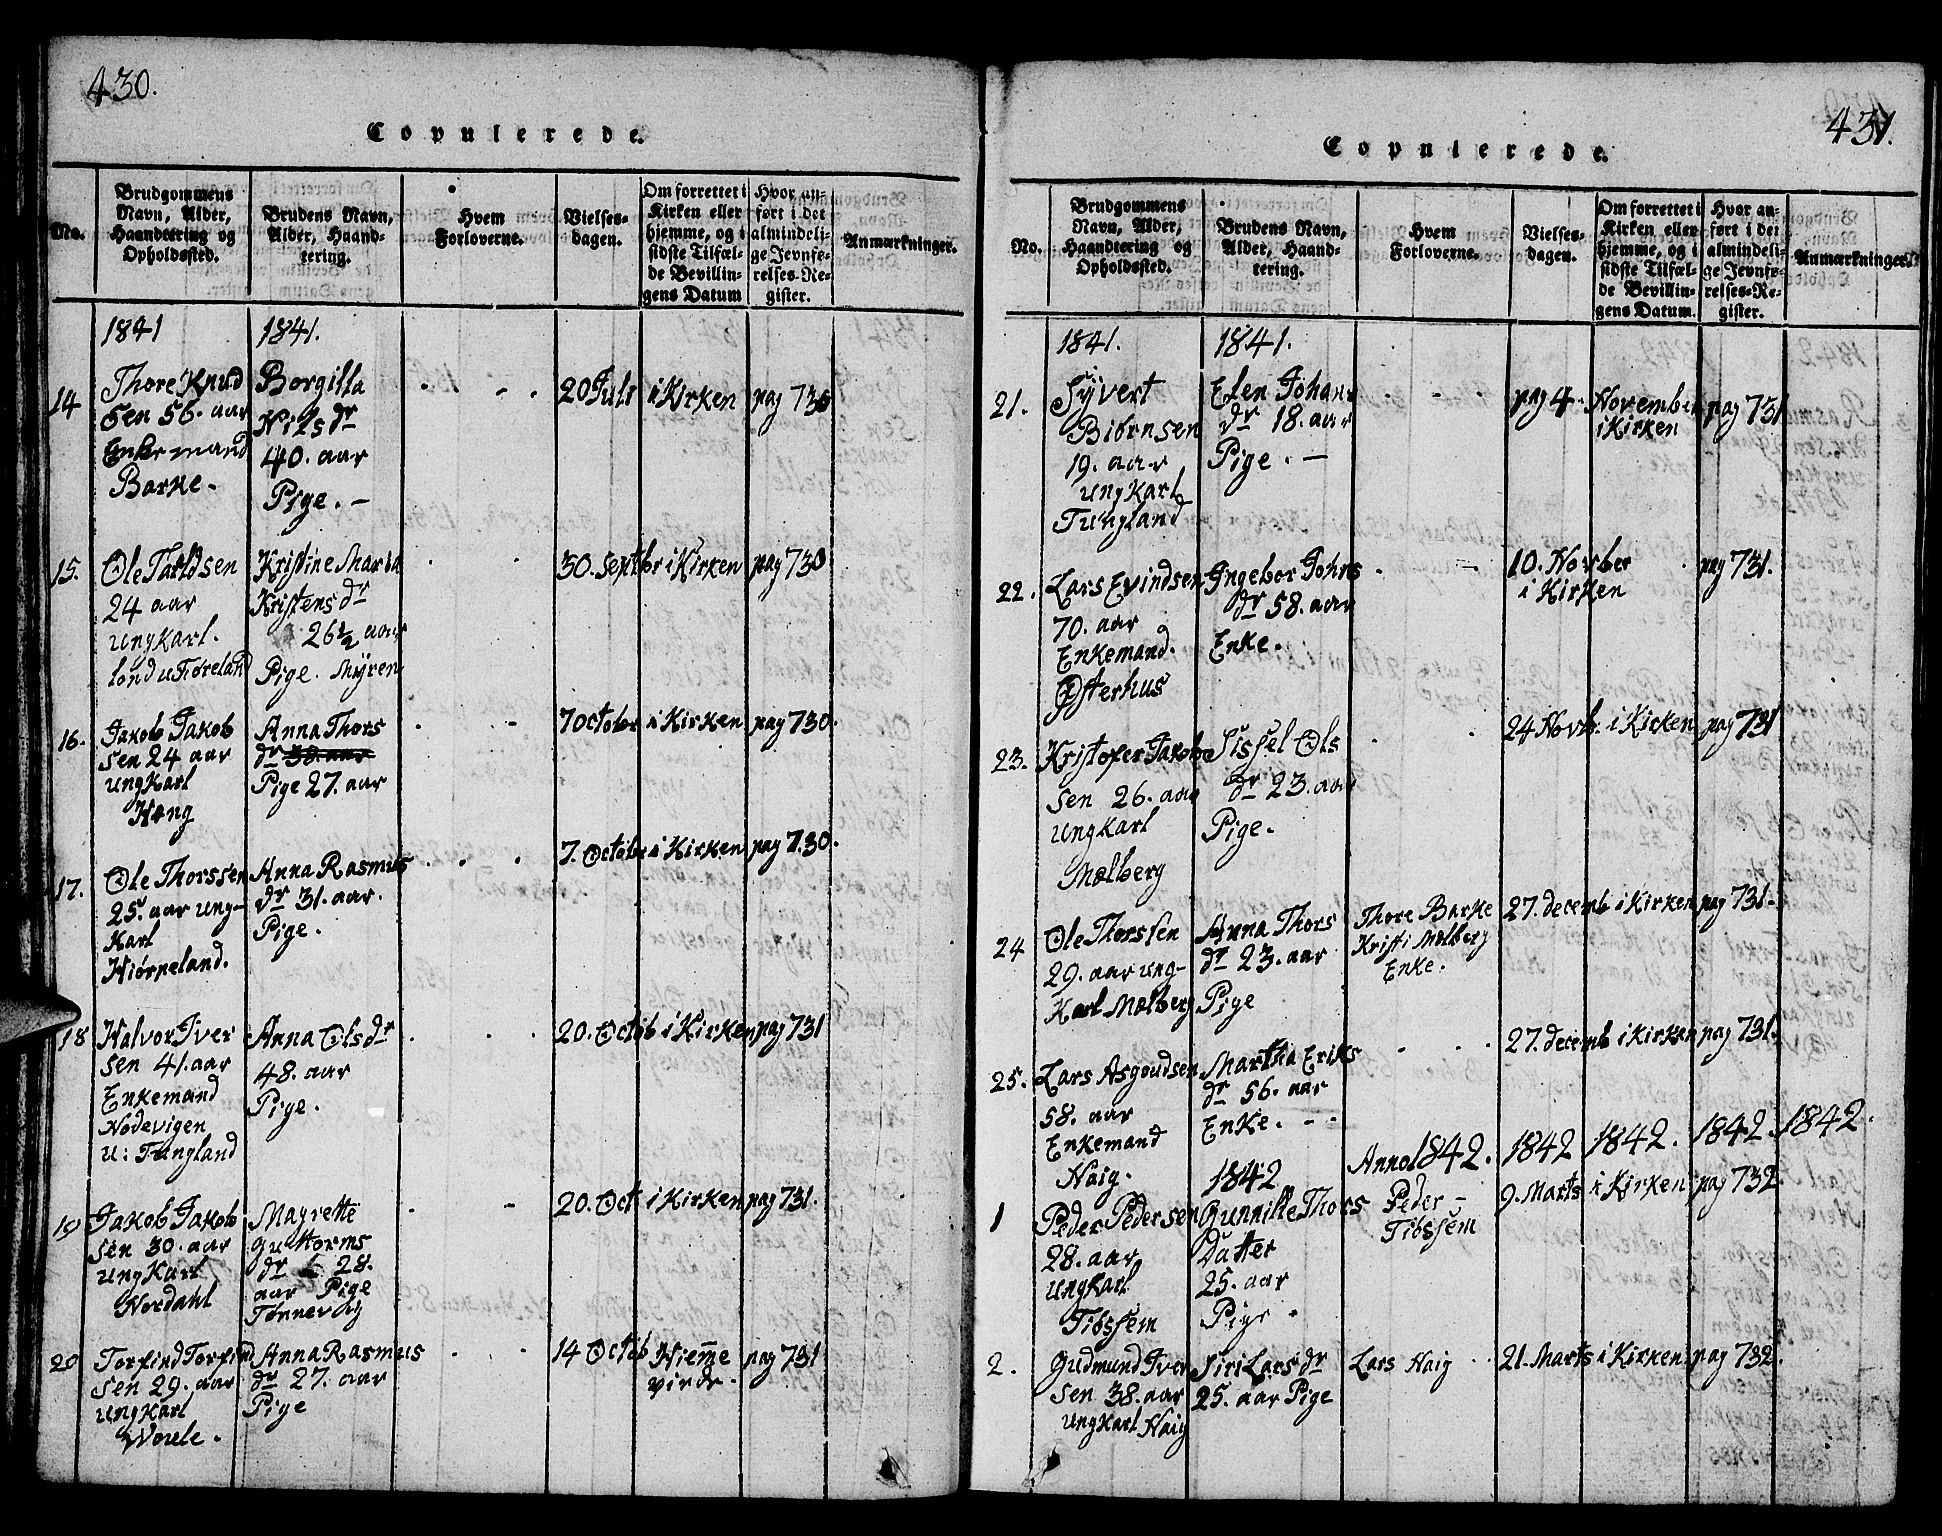 430.
Copulerede.
No.
Brudgommens
Navn, Alder,
Haandtering og
Opholdssted.
Brudens Navn,
Alder, Haand-
tering.
Hvem
Forloverne.
Vielses-
dagen.
Om forrettet i
Kirken eller
hjemme, og i
sidste Tilfæl-
de Bevillin-
gens Datum
Hvor an-
ført i det
almindeli-
ge Jevnfø-
relses-Re-
gister.
Anmærkninger.
1841
1841.
14
Thore Knud
Sen 56. aar
Enkemand
Barke.
Borgilla
Nils dr
40. aar
Pige. –
20 Juli
i Kirken
pag 730
15.
Ole Tarldsen
24 aar
ungKarl.
Kristine Maria
Kristens dr
26½ aar
Pige. Myren
30. Septbr
i Kirken
pag 730
16.
Jakob Jakob
sen 24 aar
ungKarl
Hang
Anna Thors
dr 38. aar
Pige 27. aar
7 October
i Kirken
pag 730.
17.
Ole Thorssen
25. aar ung-
Karl
Hiörpeland.
Anna Rasmus
dr 31. aar.
Pige.
7. October
i Kirken
pag 730.
18
Halvor Iver
sen 41. aar
Enkemand
Nodevigen
u: Tungland
Anna Ols dr
48. aar
Pige.
20. Octob
i Kirken
pag 731
19
Jakob Jakob
sen 30. aar
ungKarl
Nordahl
Magrette
Guttorms
dr 28.
aar Pige
Tønnevig
20. Oct
i Kirken
pag 731.
20
Torfind Torfind
sen 29. aar
ungKarl
Woule.
Anna Rasmus
dr 27. aar
Pige
14 Octob
Hiemme
virdr.
pag 731
431.
Copulerede.
No.
Brudgommens
Navn, Alder,
Haandtering og
Opholdssted.
Brudens Navn,
Alder, Haand-
tering.
Hvem
Forloverne.
Vielses-
dagen.
Om forrettet i
Kirken eller
hjemme, og i
sidste Tilfæl-
de Bevillin-
gens Datum.
Hvor an-
ført i det
almindeli-
ge Jevnfø-
relses-Re-
gister.
Anmærkninger.
1841.
1841.
21.
Syvert
Biörnsen
19. aar
ungKarl
Tungland
Elen Johans
dr 18. aar
Pige. –
pag 4
November
i Kirken
pag 731
22.
Lars Evindsen
70. aar
Enkemand.
Østerhus
Ingebor Johns
dr 58. aar
Enke.
10. Novber
i Kirken
pag 731.
23.
Kristofer Jakob
sen 26. aar
ungKarl
Mælberg
Sissel Ols
dr 23. aar
Pige.
24 Novb.
i Kirken
pag 731
24
Ole Thorssen
29. aar ung-
Karl Mælberg
Anna Thors
dr 23. aar
Pige
Thore Barke
Kristi Mælberg
Enke.
27. decemb
i Kirken
pag 731.
25.
Lars Asgoudsen
58. aar
Enkemand
Haig.
Martha Eriks
dr 56. aar
Enke. –
27. decemb
i Kirken
pag 731.
1842
Anno 1842.
1842
1842.
1842
1842.
1
Peder Pedersen
28. aar
ungKarl
Tibssem
Gunnille Thors
Datter
25. aar
Pige
Peder –
Tibssem
9. Marts
i Kirken
pag 732
2.
Gudmund Iver
sen 38. aar
ungKarl Haig
Siri Lars dr
25. aar Pige
Lars Haig
21. Marts
i Kirken
pag 732.